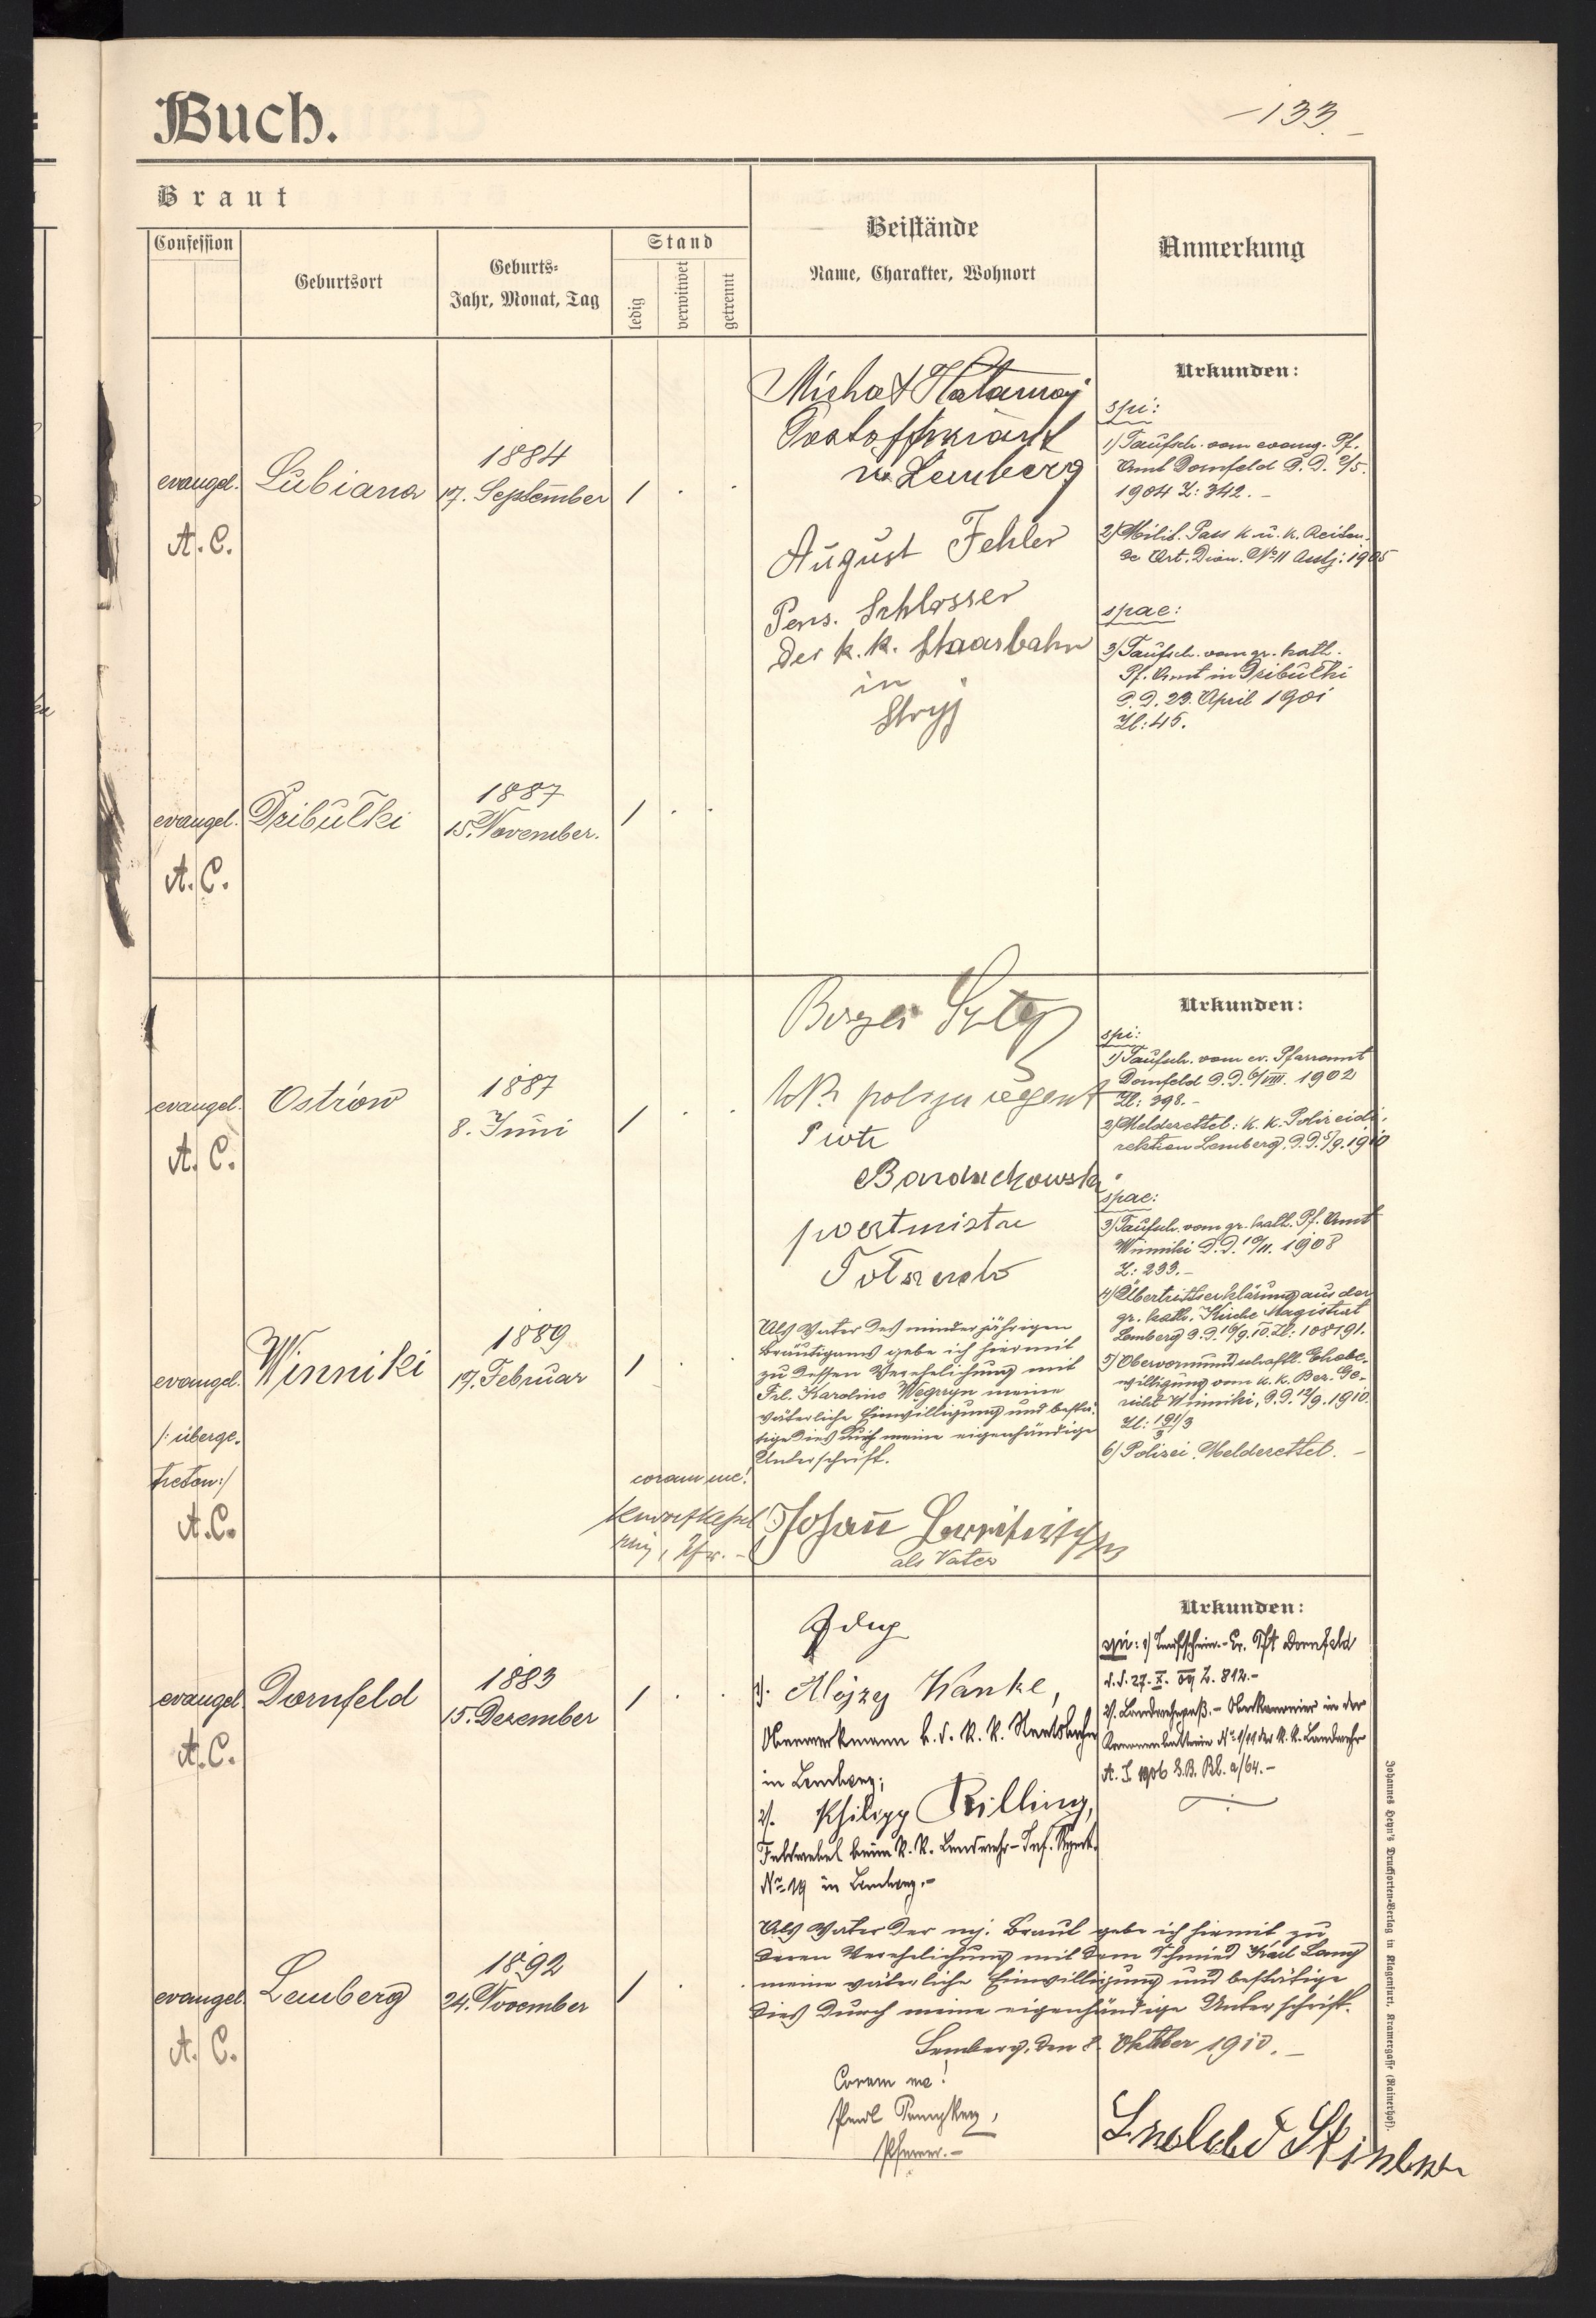 Buch.
133.
Braut
Confession
Geburtsort
Geburts-
Jahr, Monat, Tag
Stand
ledig
verwitwet
getrennt
Beistände
Name, Charakter, Wohnort
Anmerkung
evangel.
A. C.
Lubiana
1884
17. September
1
Michał
Lemberg
August Fehler
Pens. Schlosser
der k. k. Staasbahn
in
Stryj
Urkunden:
spi:
1) Taufsch. vom evang. Pf.
Amt Dornfeld D. D. 2/5.
1904 Z: 342. –
2) Milit. Pass k. u. k. Reiten-
de Art. Dion. No 11 Asstj: 1905
spae:
3) Taufsch. vom gr. kath.
Pf. Amt in Dzibułki
D. D. 23. April 1901
Zl: 45.
evangel.
A. C.
Dzibułki
1887
15. November.
1
evangel.
A. C.
Ostrów
1887
8. Juni
1
Piotr
Urkunden:
spi:
1) Taufsch. vom ev. Pfarramt
Dornfeld D. D. 6/VIII. 1902
Zl: 398. –
2) Meldezettel: k. k. Polizeidi-
rektion Lemberg, D. D. 5/9. 1910
spae:
3) Taufsch. vom gr. kath. Pf. Amt
Winniki D. D. 10/11. 1908
Z: 233. –
4) Übertrittserklärung aus der
gr. kath. Kirche Magistrat
Lemberg D. D. 16/9. 10. Zl: 108791.
5) Obervormundschaftl. Ehebe-
willigung vom k. k. Bez. Ge-
richt Winniki, D. D. 12/9. 1910.
Zl: 191/3
6) Polizei. Meldezettel. –
evangel.
/: überge-
treten :/
A. C.
Winniki
1889
17. Februar
1
Als Vater des minderjährigen
Bräutigams gebe ich hiermit
zu dessen Verehelichung mit
Frl. Karolina Węgrzyn meine
väterliche Einwilligung und bestä-
tige dies durch meine eigenhändige
Unterschrift.
coram me!
Johann
als Vater
evangel.
A. C.
Dornfeld
1883
15. Dezember
1
1). Alojzy Hanke,
Oberwerkmann b. d. k. k. Staatsbahn
in Lemberg;
2). Philipp Rilling,
Feldwebel beim k. k. Landwehr-Inf. Regmt.
No 19 in Lemberg. –
Urkunden:
spi: 1) Taufschein. – Ev. Pft Dornfeld
d. d. 27. X. 09 Z. 812. –
2). Landwehrpaß. – Oberkanonier in der
Kanonenbatterie No 1/11 der k. k. Landwehr
A. J. 1906 G. B. Bl. a/64. –
evangel.
A. C.
Lemberg
1892
24. November
1
Als Vater der mj. Braut gebe ich hiemit zu
deren Verehelichung mit dem Schmied Karl Lang
meine väterliche Einwilligung und bestätige
dies durch meine eigenhändige Unterschrift.
Lemberg, den 8. Oktober 1910. –
Coram me!
Pfarrer. –
Johannes Heyn's Drucksorten-Verlag in Klagenfurt, Kramergasse (Rainerhof).